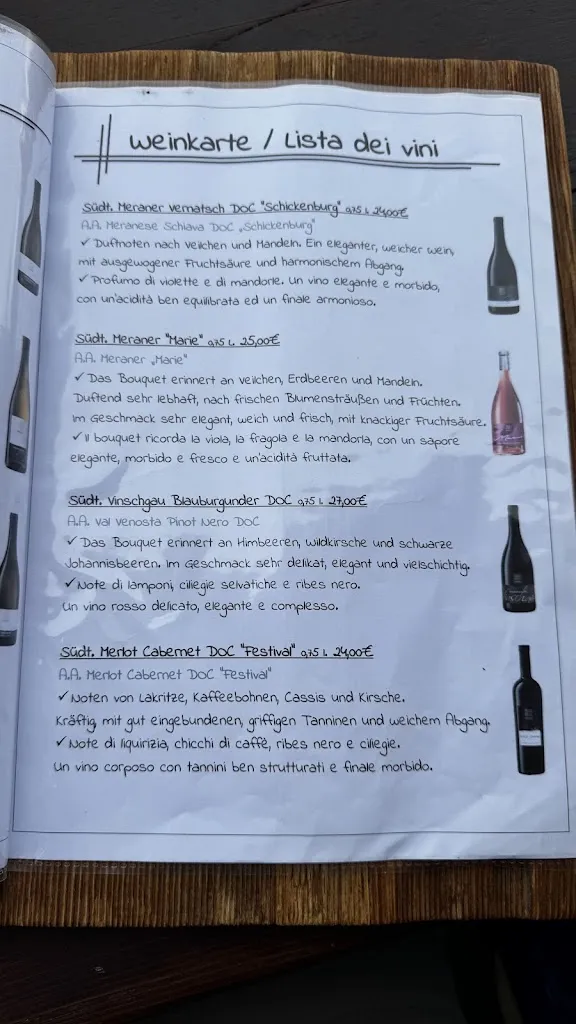 Weinkarte / Lista dei vini
Südt. Meraner Vernatsch DOC "Schickenburg" 0,75 l. 24,00€
A.A. Meranese Schiava DOC „Schickenburg"
✓ Duftnoten nach Veilchen und Mandeln. Ein eleganter, weicher Wein,
mit ausgewogener Fruchtsäure und harmonischem Abgang.
✓ Profumo di violette e di mandorle. Un vino elegante e morbido,
con un'acidità ben equilibrata ed un finale armonioso.
Südt. Meraner "Marie" 0,75 L. 25,00€
A.A. Meraner „Marie"
✓ Das Bouquet erinnert an Veilchen, Erdbeeren und Mandeln.
Duftend sehr lebhaft, nach frischen Blumensträußen und Früchten.
Im Geschmack sehr elegant, weich und frisch, mit knackiger Fruchtsäure.
✓ Il bouquet ricorda la viola, la fragola e la mandorla, con un sapore
elegante, morbido e fresco e un'acidità fruttata.
Südt. Vinschgau Blauburgunder DOC 0,75 l. 27,00€
A.A. Val Venosta Pinot Nero DOC
✓ Das Bouquet erinnert an Himbeeren, Wildkirsche und schwarze
Johannisbeeren. Im Geschmack sehr delikat, elegant und vielschichtig.
✓ Note di lamponi, ciliegie selvatiche e ribes nero.
Un vino rosso delicato, elegante e complesso.
Südt. Merlot Cabernet DOC "Festival" 0,75 l. 24,00€
A.A. Merlot Cabernet DOC "Festival"
✓ Noten von Lakritze, Kaffeebohnen, Cassis und Kirsche.
Kräftig, mit gut eingebundenen, griffigen Tanninen und weichem Abgang.
✓ Note di liquirizia, chicchi di caffè, ribes nero e ciliegie.
Un vino corposo con tannini ben strutturati e finale morbido.